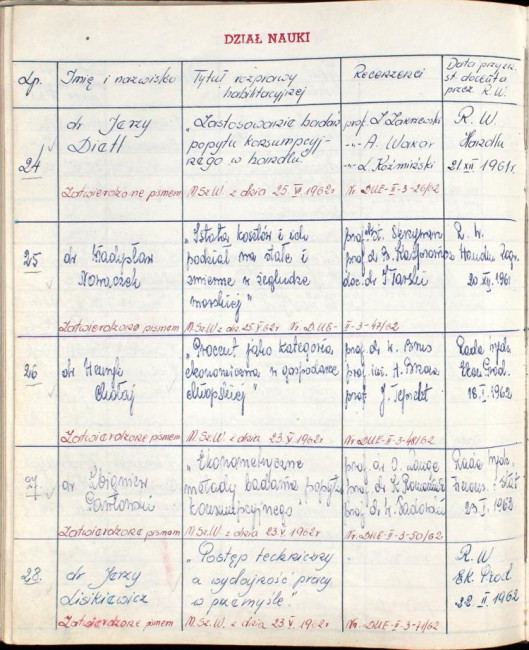 DZIAŁ NAUKI
Lp. Imię i nazwisko Tytuł rozprawy habilitacyjnej Recenzenci Data przyzn. st. docenta przez R.W.
24 dr Jerzy Dietl
„Zastosowanie badań
popytu konsumpcyj-
nego w handlu"
prof. J. Zakrzewski
-"- A. Wakar
-"- L. Koźmiński
R. W.
Handlu
21 XII 1961r.
Zatwierdzone pismem M.Sz.W. z dnia 25.IV.1962r Nr. DUE-II-3-26/62
25 dr Władysław
Nowaczek
„Istota kosztów i ich
podział na stałe i
zmienne w żegludze
morskiej"
prof.
prof. dr
doc. dr I Tarski
R. W.
Handlu Zagr.
20 XII 1961
Zatwierdzone pismem M.Sz.W. z dn. 25.V.62r Nr. DUE-II-3-47/62
26 dr
„Procent jako kategoria
ekonomiczna w gospodarce
chłopskiej"
prof. dr W. Brus
prof.
prof. J. Tepicht
Rada Wydz.
Ekon. Prod.
18.I.1962
Zatwierdzone pismem M.Sz.W. z dnia 23.V.1962r Nr. DUE-II-3-48/62
27 dr Zbigniew
Pawłowski
„Ekonometryczne
metody badania popytu
konsumpcyjnego"
prof. dr O. Lange
prof. dr K. Romaniuk
prof. dr W. Sadowski
Rada Wydz.
Finans. i Stat.
Zatwierdzone pismem M.Sz.W. z dnia 23.V.1962r Nr. DUE-II-3-50/62
28. dr Jerzy
Lisikiewicz
„Postęp techniczny
a wydajność pracy
w przemyśle".
R. W.
Ek. Prod.
22.II.1962
Zatwierdzone pismem M.Sz.W. z dnia 23.V.1962r Nr. DUE-II-3-71/62